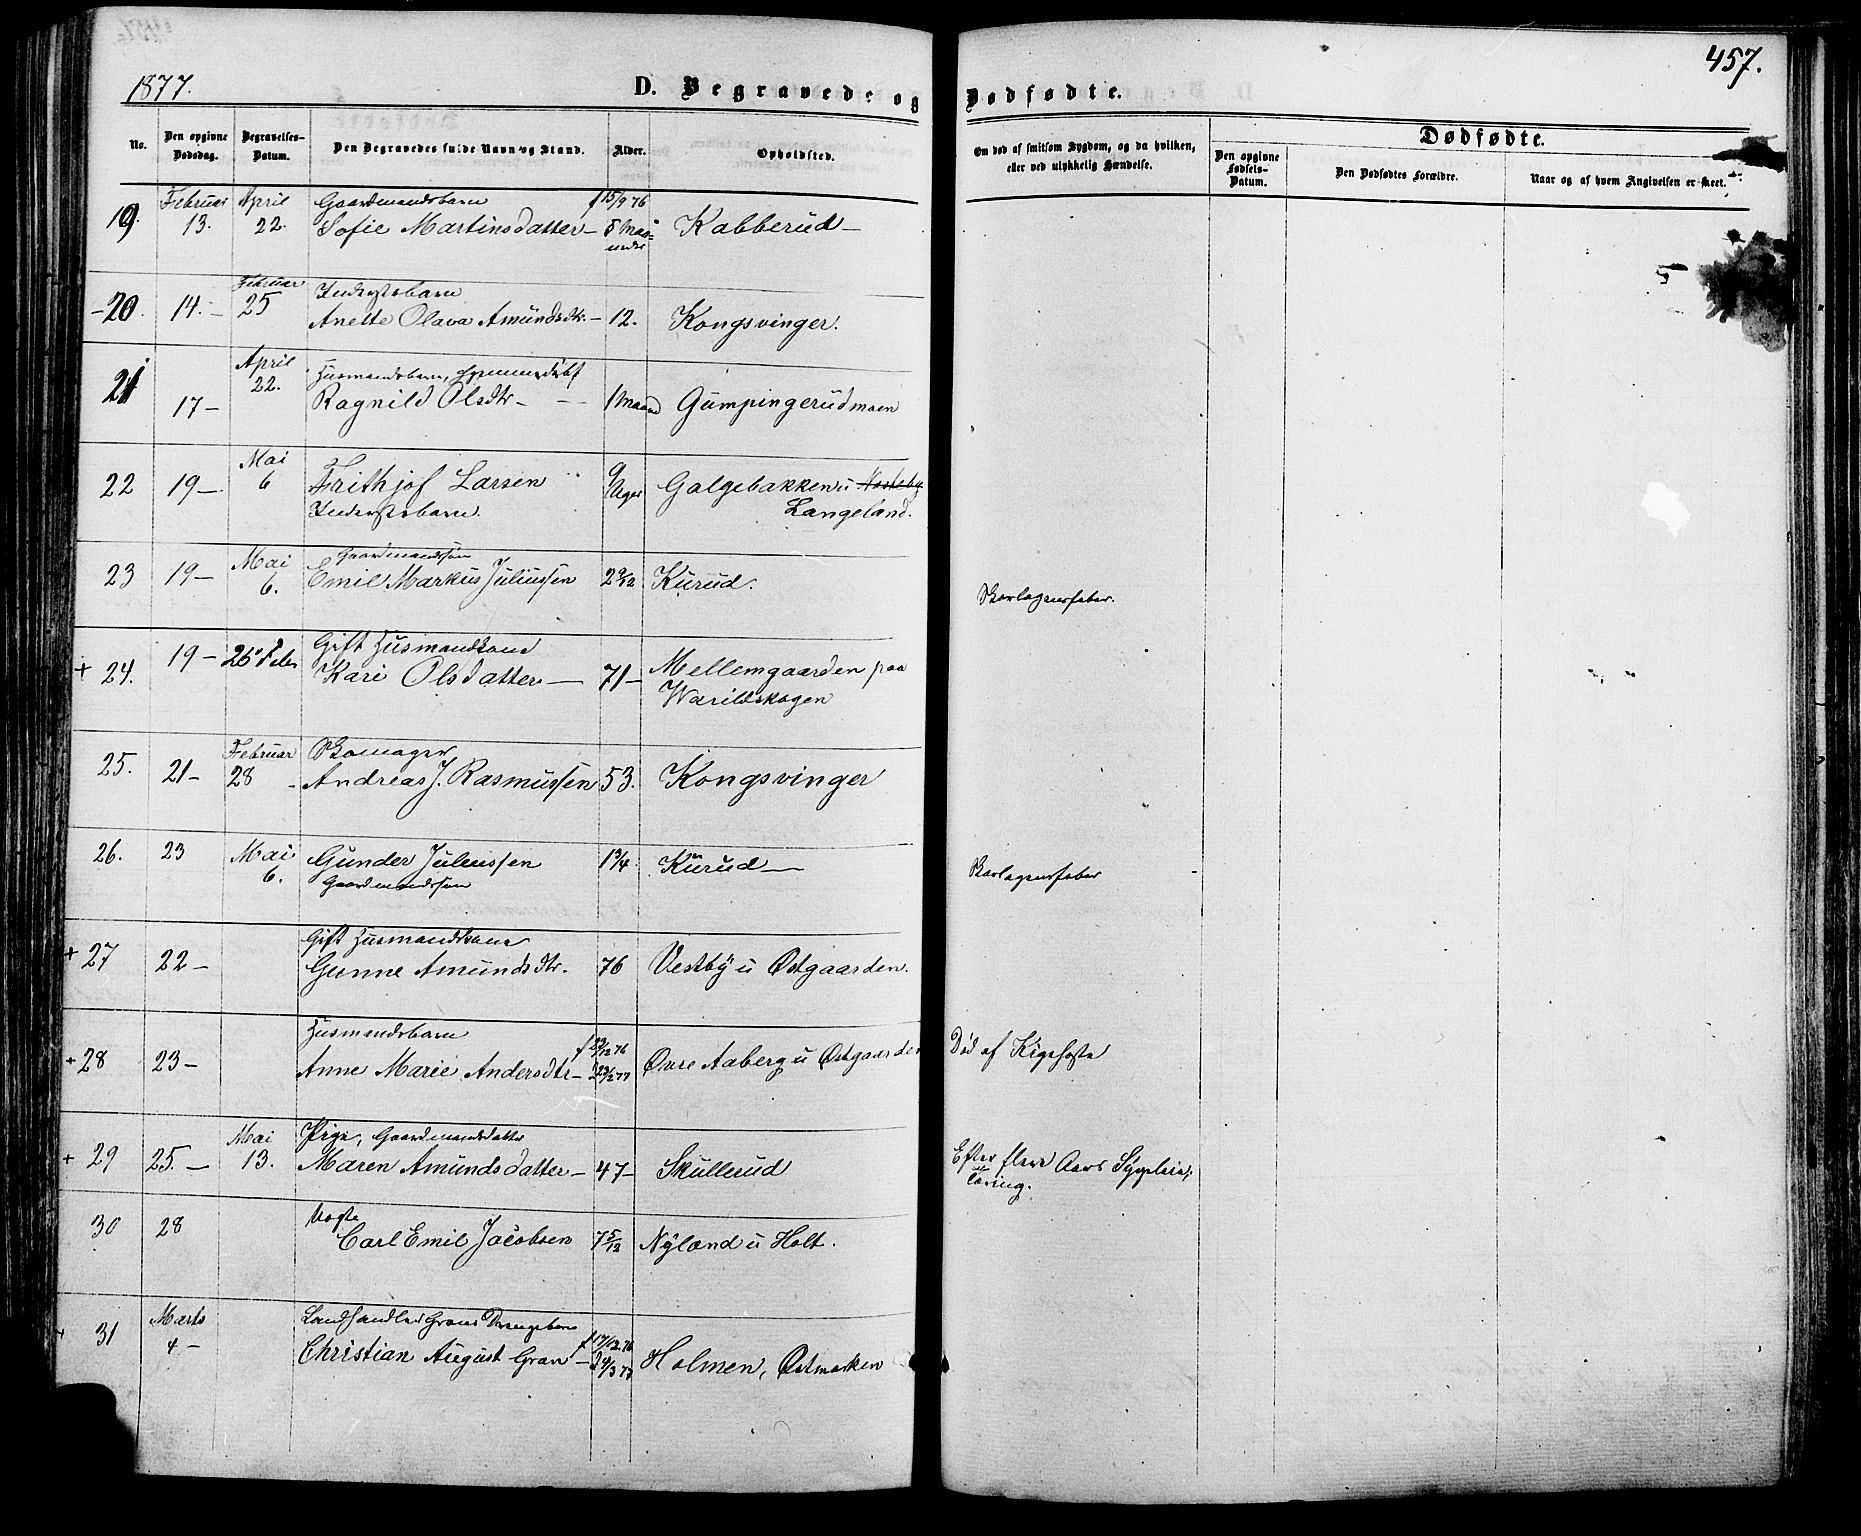 1877.
D. Begravede og Dødfødte.
457.
No.
Den opgivne Dødsdag.
Begravelses-Datum.
Den Begravedes fulde Navn og Stand.
Alder.
Opholdsted.
Om død af smitsom Sygdom, og da hvilken, eller ved ulykkelig Hændelse.
Dødfødte.
Den opgivne Fødsels-Datum.
Den Dødfødtes Forældre.
Naar og af hvem Angivelsen er skeet.
Februar April Gaardmandsbarn f 15/9 76
19. 13. 22. Sofie Martinsdatter — 5 Maa= Kabberud —
Februar Inderstbarn
20. 14. 25 Anette Olava Amundsdtr. — 12. Kongsvinger.
April Husmandsbarn,
21 17 — 22. Ragnild Olsdtr — 1 Maaned Gumpingerudmoen
Mai
22 19 — 6 Frithjof Larsen 9 Uger Galgebakken u
Inderstbarn. Langeland.
Mai Gaardmandssøn
23 19 — 6. Emil Markus Juliussen 2 9/12 Kurud. Skarlagensfeber.
Gift Husmandskone
+ 24. 19 — 26 Feb Kari Olsdatter — 71 — Mellemgaarden paa
Warildskogen
Februar Skomager
25. 21 — 28 Andreas J. Rasmussen 53. Kongsvinger
26. 23 Mai 6. Gunder Juliussen 1 3/4 Kurud — Skarlagensfeber
Gaardmandssøn
Gift Husmandskone
+ 27 22 — Gunne Amundsdtr. 76 Vestby u Østgaarden.
Husmandsbarn f 22/12 76
+ 28 23 — Anne Marie Andersdtr — 23/2 77 Øvre Aaberg u Østgaarden Død af Kighoste
Mai Pige, Gaardmandsdatter
+ 29 25. — 13. Maren Amundsdatter — 47 — Skullerud Efter flere Aars Sygeleie;
Tæring.
30 28 Carl Emil Jacobsen 7 5/12 Nyland u Holt.
Marts Landhandler Grans Drengebarn f 17/12 76
31 4 — Christian August Gran — 4/3 77 Holmen, Østmarken